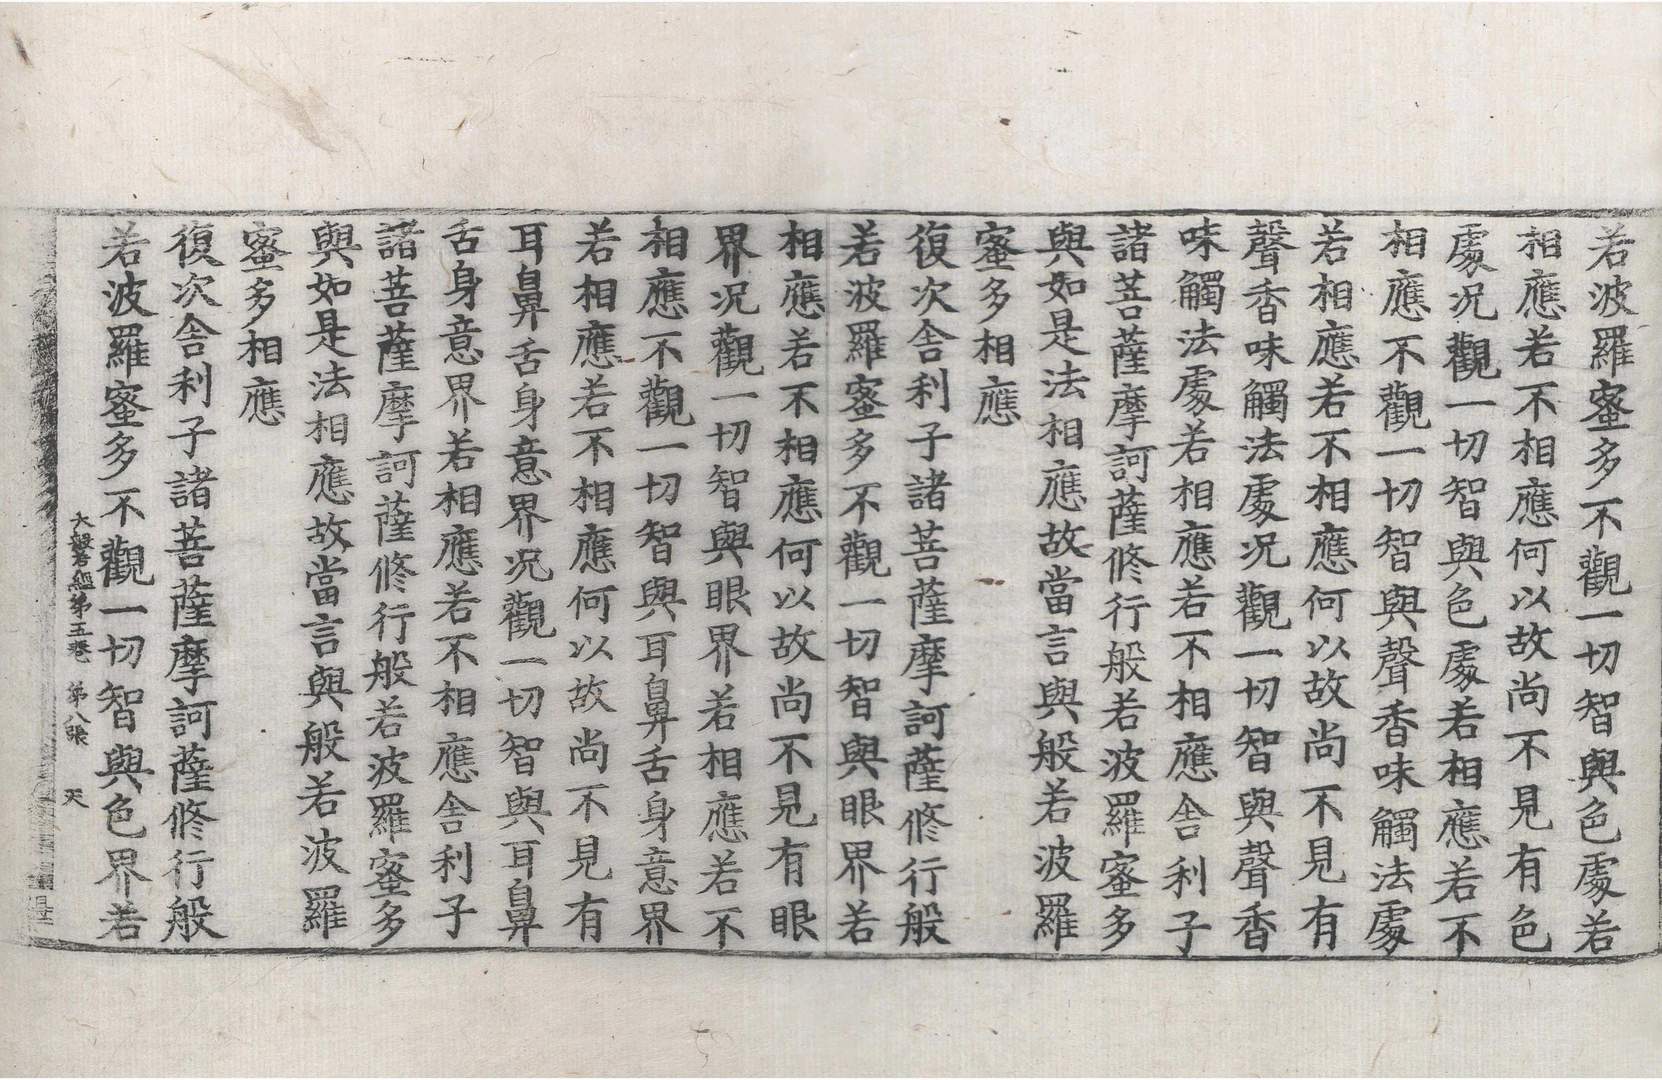 若波羅蜜多不觀一切智與色處若
相應若不相應何以故尚不見有色
處況觀一切智與色處若相應若不
相應不觀一切智與聲香味觸法處
若相應若不相應何以故尚不見有
聲香味觸法處況觀一切智與聲香
味觸法處若相應若不相應舍利子
諸菩薩摩訶薩修行般若波羅蜜多
與如是法相應故當言與般若波羅
蜜多相應
復次舍利子諸菩薩摩訶薩修行般
若波羅蜜多不觀一切智與眼界若
相應若不相應何以故尚不見有眼
界況觀一切智與眼界若相應若不
相應不觀一切智與耳鼻舌身意界
若相應若不相應何以故尚不見有
耳鼻舌身意界況觀一切智與耳鼻
舌身意界若相應若不相應舍利子
諸菩薩摩訶薩修行般若波羅蜜多
與如是法相應故當言與般若波羅
蜜多相應
復次舍利子諸菩薩摩訶薩修行般
若波羅蜜多不觀一切智與色界若
大般若經第五卷 第八張 天